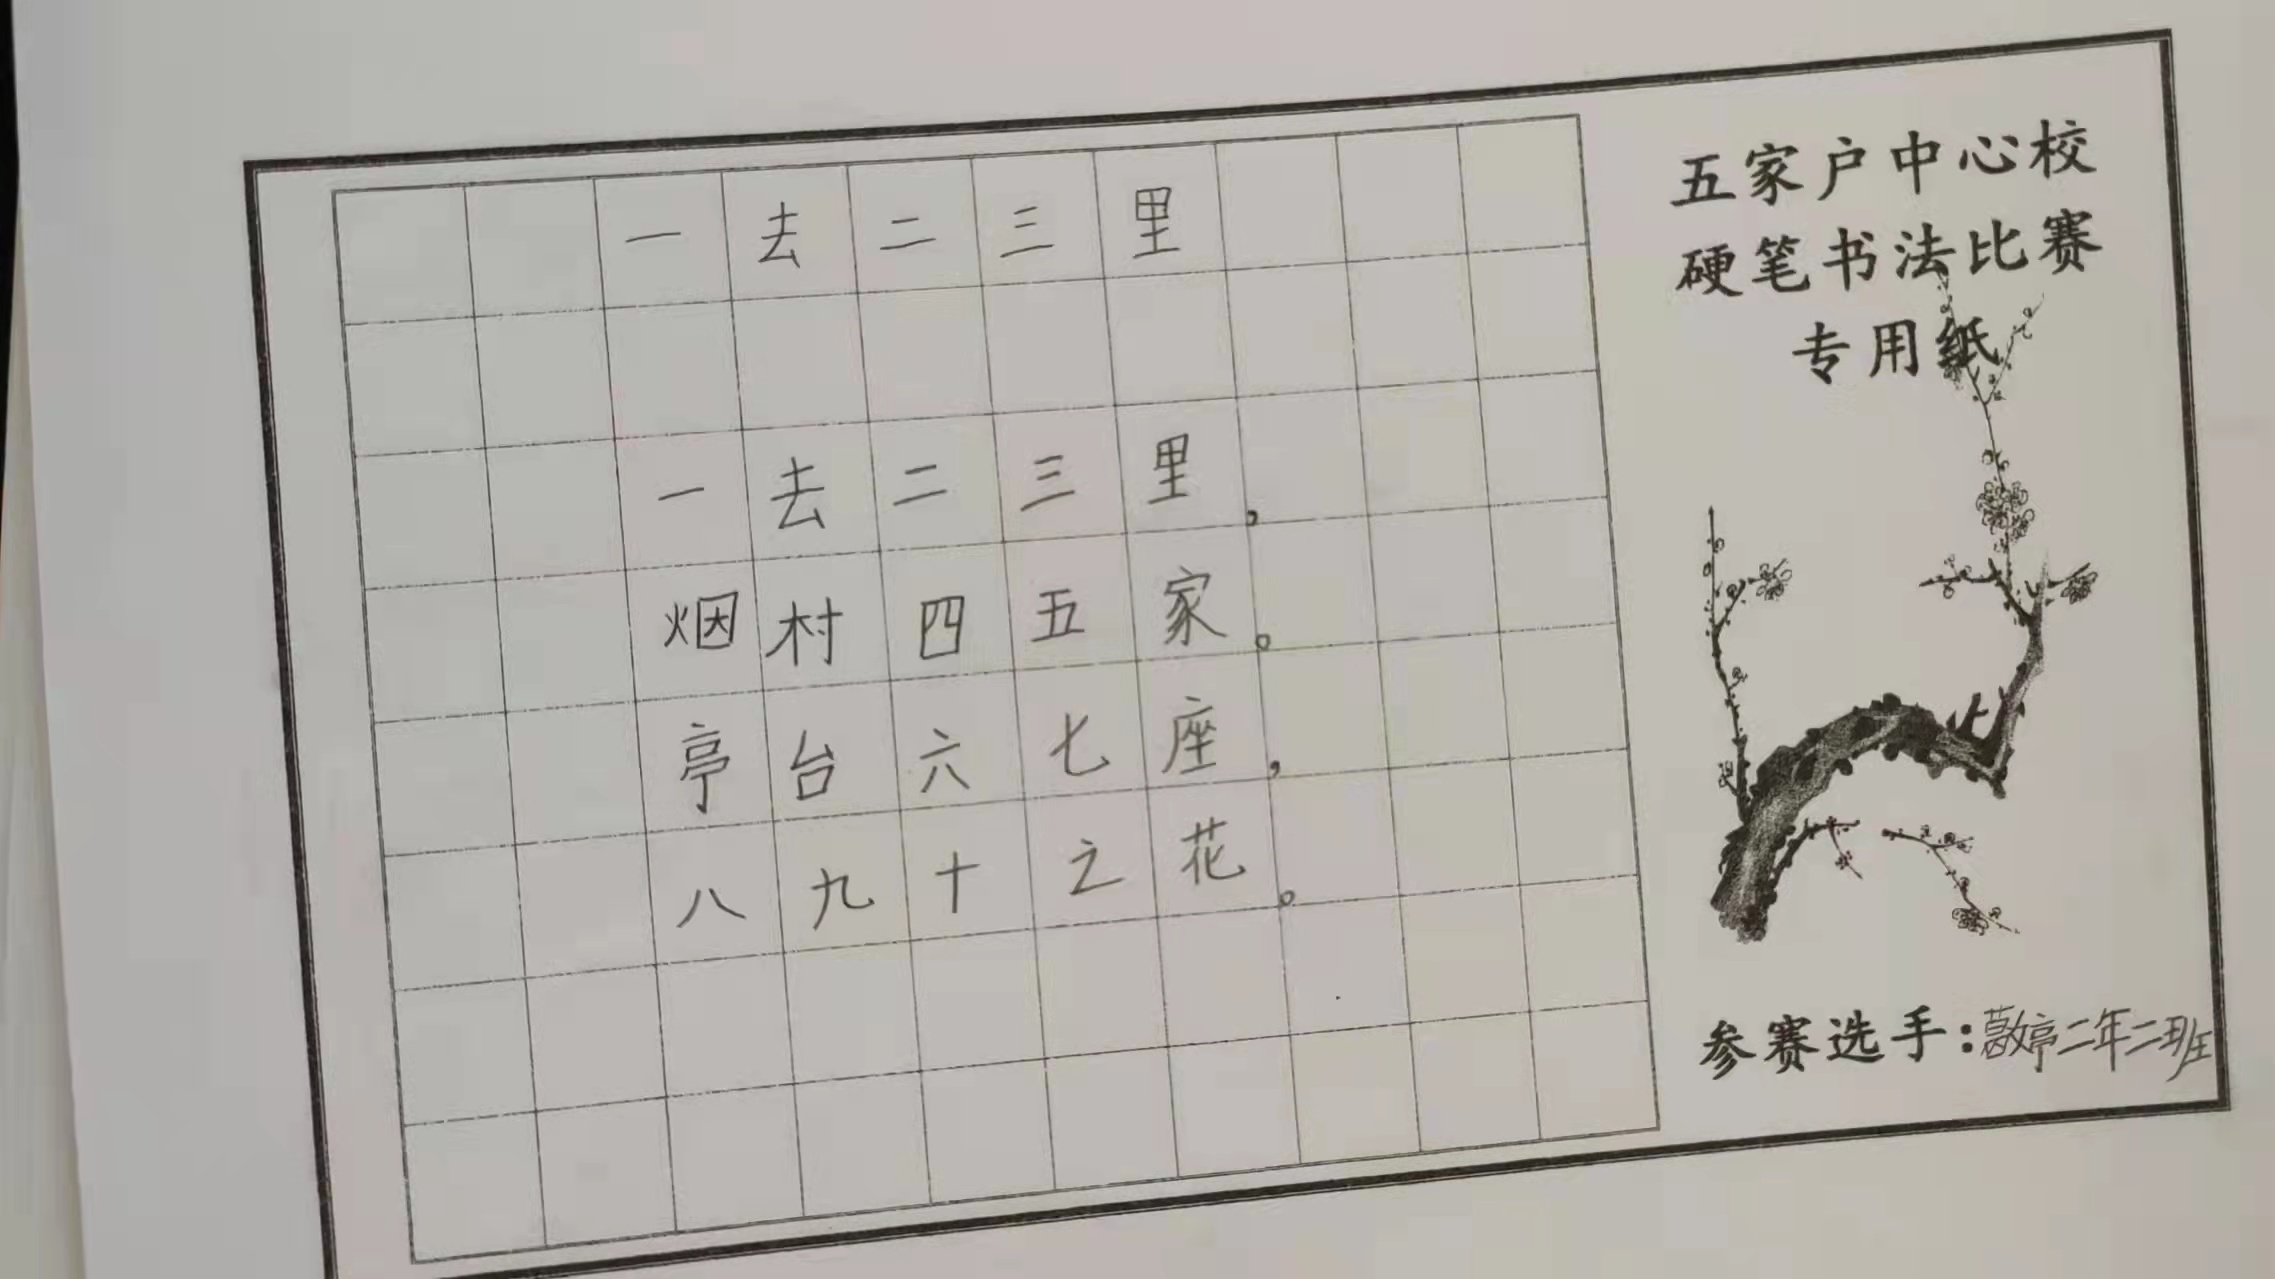 一去二三里
一去二三里,
烟村四五家。
亭台六七座,
八九十之花。
五家户中心校
硬笔书法比赛
专用纸
参赛选手:婷二年二班